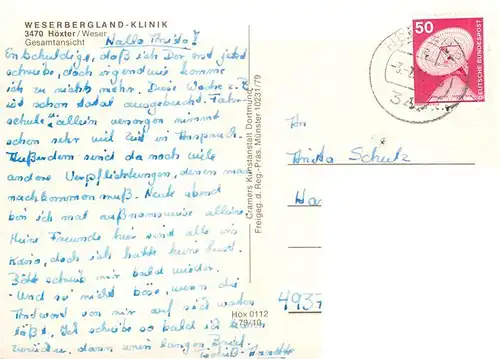 WESERBERGLAND-KLINIK
3470 Höxter/Weser
Gesamtansicht
Hallo Anita!
Entschuldige, daß ich Dir erst jetzt
schreibe, doch irgendwie komme
ich zu nichts mehr. Diese Woche
ist schon total ausgebucht. Fahr-
schule allein nimmt
schon sehr viel Zeit in Anspruch.
Außerdem sind da noch viele
andere Verpflichtungen, denen man
nachkommen muß. Heute abend
bin ich mal ausnahmsweise alleine.
Meine Freunde hier sind alle im
Kino, doch ich hatte keine Lust.
Bitte schreib mir bald wieder.
Und sei nicht böse, wenn die
Antwort von mir auf sich warten
läßt. Ich schreibe so bald ich kann
zurück, dann einen langen Brief.
Cramers Kunstanstalt Dortmund
Freigeg. d. Reg.-Präs. Münster 10231/79
Höx 0112
79/10
50
DEUTSCHE BUNDESPOST
An
Anita Schulz
493